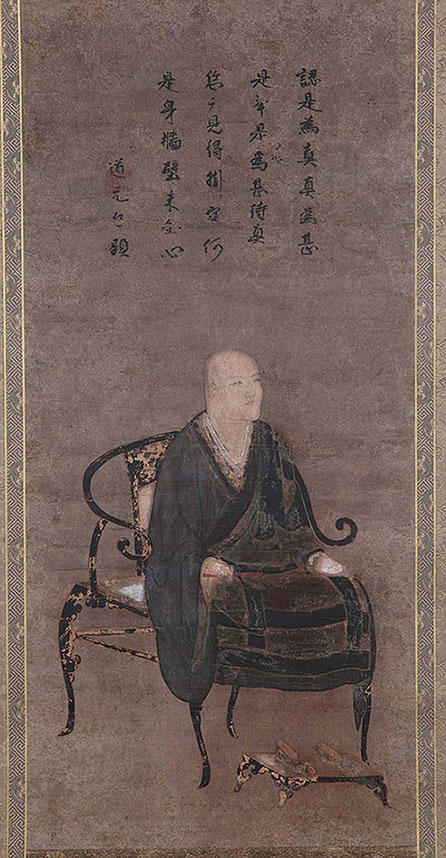 認是為真真為甚
是是為甚待真
恁麼見得掛空何
是身牆壁未全心
道元自題